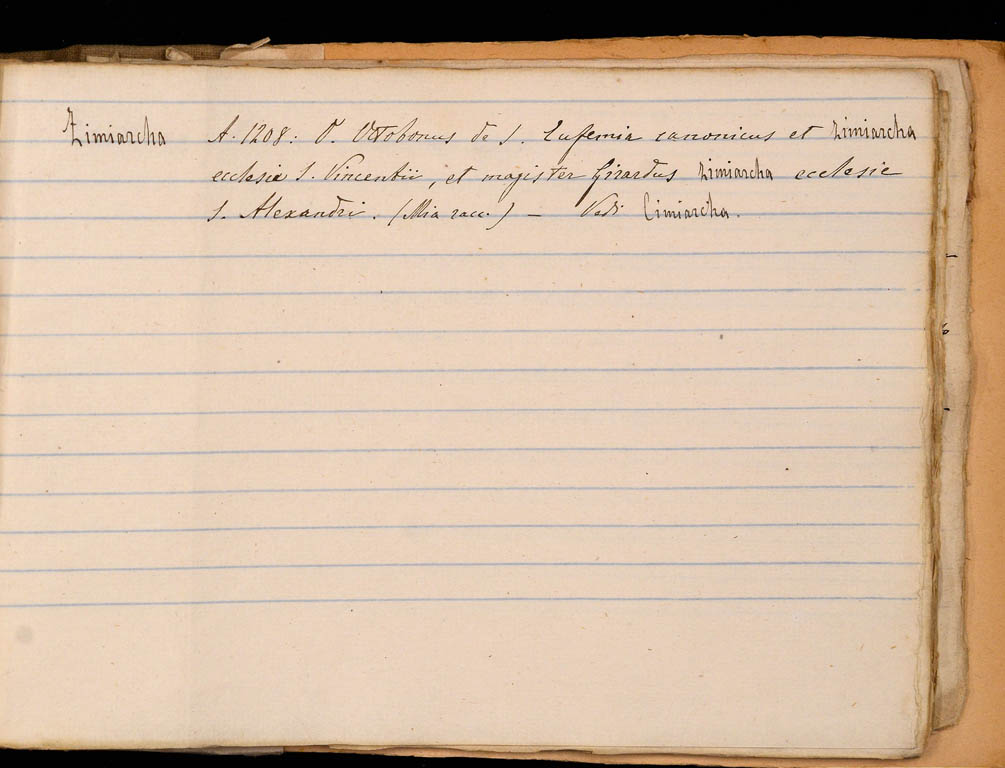 Zimiarcha A. 1208: D. Ottobonus de S. Eufemia canonicus et zimiarcha
ecclesie S. Vincentii, et magister Girardus zimiarcha ecclesie
S. Alexandri. (Mia racc.) — Vedi Cimiarcha.